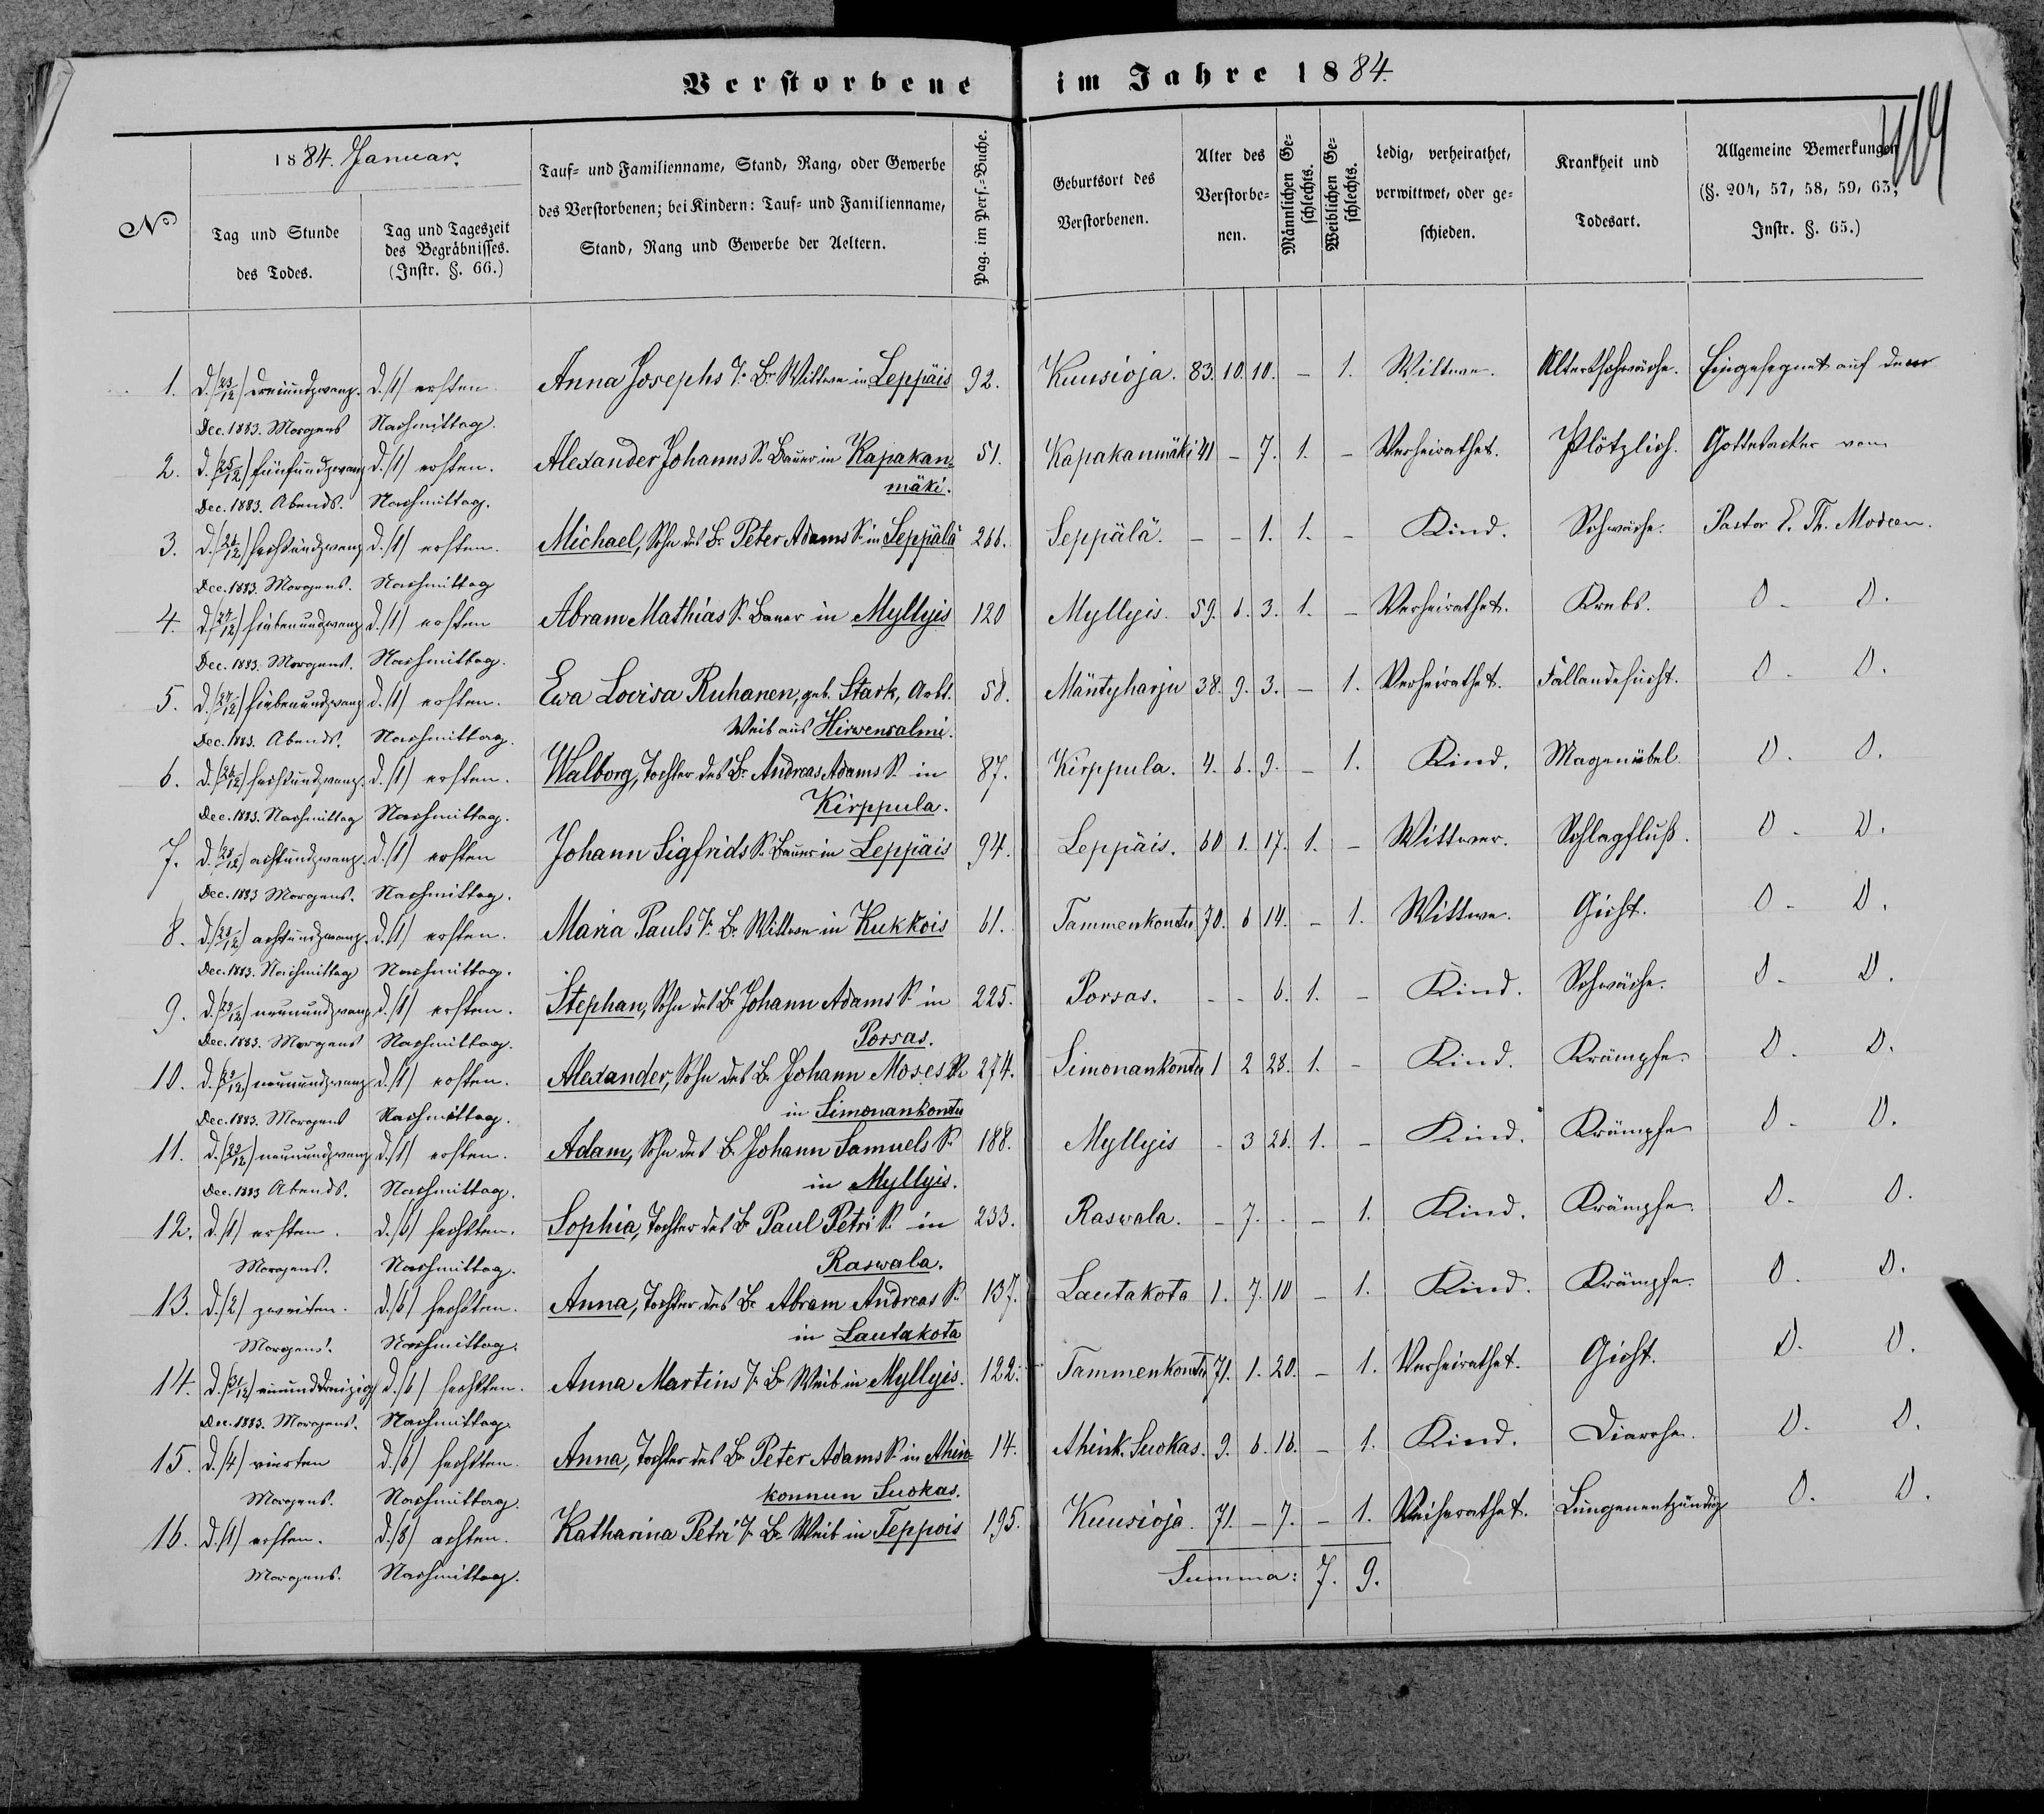 Verstorbene im Jahre 1884.
1884. Januar.
No
Tag und Stunde
des Todes.
Tag und Tageszeit
des Begräbnisses.
(Instr. §. 66.)
Tauf- und Familienname, Stand, Rang, oder Gewerbe
des Verstorbenen; bei Kindern: Tauf- und Familienname,
Stand, Rang und Gewerbe der Aeltern.
Pag. im Pers.-Buche.
Geburtsort des
Verstorbenen.
Alter des
Verstorbe-
nen.
Männlichen Ge-
schlechts.
Weiblichen Ge-
schlechts.
Ledig, verheirathet,
verwittwet, oder ge-
schieden.
Krankheit und
Todesart.
Allgemeine Bemerkungen
(§. 204, 57, 58, 59, 63,
Instr. §. 65.)
1. d. (23/12) dreiundzwanz. d. (1) ersten. Anna Josephs T. Br. Wittwe in Leppäis 92. Kuusioja. 83. 10. 10. – 1. Wittwe. Altersschwäche. Eingesegnet auf dem
Dec. 1883. Morgens Nachmittag.
2. d. (25/12) fünfundzwanz d. (1) ersten. Alexander Johanns S. Bauer in Kapakan- 51. Kapakanmäki 41 – 7. 1. – Verheirathet. Plötzlich. Gottesacker vom
Dec. 1883. Abends. Nachmittag. mäki.
3. d. (26/12) sechsundzwanz d. (1) ersten. Michael, Sohn des Br. Peter Adams S. in Seppälä 266. Seppälä. – – 1. 1. – Kind. Schwäche. Pastor E. Th.
Dec. 1883. Morgens. Nachmittag
4. d. (27/12) siebenundzwanz d. (1) ersten Abram Mathias S. Bauer in Myllyis 120 Myllyis. 59. 6. 3. 1. – Verheirathet. Krebs. D – D.
Dec. 1883. Morgens. Nachmittag.
5. d. (27/12) siebenundzwanz d. (1) ersten. Ewa Lovisa Ruhanen, geb. Stark, Arbt. 58. Mäntyharju 38. 9. 3. – 1. Verheirathet. Fallandesucht. D – D.
Dec. 1883. Abends. Nachmittag. Weib aus Hirwensalmi.
6. d. (26/12) sechsundzwanz. d. (1) ersten. Walborg, Tochter des Br. Andreas Adams S. in 87. Kirppula. 4. 6. 9. – 1. Kind. Magenübel. D. D.
Dec. 1883. Nachmittag Nachmittag. Kirppula.
7. d. (28/12) achtundzwanz. d. (1) ersten Johann Sigfrids S. Bauer in Leppäis 94. Leppäis. 60 1. 17. 1. – Wittwer. Schlagfluß. D – D.
Dec. 1883 Morgens. Nachmittag.
8. d. (28/12) achtundzwanz. d. (1) ersten. Maria Pauls T. Br. Wittwe in Kukkois 61. Tammenkontu 70. 6 14. – 1. Wittwe. Gicht. D – D.
Dec. 1883. Nachmittag Nachmittag.
9. d. (29/12) neunundzwanz d. (1) ersten. Stephan, Sohn des Br. Johann Adams S. in 225. Porsas. – – 6. 1. – Kind. Schwäche. D – D.
Dec. 1883. Morgens Nachmittag. Porsas.
10. d. (29/12) neunundzwanz d. (1) ersten. Alexander, Sohn des Br. Johann Moses S. 274. Simonankontu 1 2 28. 1. – Kind. Krämpfe. D. D.
Dec. 1883. Morgens Nachmittag. in Simonankontu
11. d. (29/12) neunundzwanz d. (1) ersten. Adam, Sohn des B. Johann Samuels S. 188. Myllyis – 3 26. 1. – Kind. Krämpfe D – D.
Dec. 1883 Abends. Nachmittag. in Myllyis.
12. d. (1) ersten. d. (6) sechsten. Sophia, Tochter des Br. Paul Petri S. in 233. Raswala. – 7. – – 1. Kind. Krämpfe. D – D.
Morgens. Nachmittag. Raswala.
13. d. (2) zweiten. d. (6) sechsten. Anna, Tochter des Br. Abram Andreas S. 137. Lautakota 1. 7. 10 – 1. Kind. Krämpfe. D. D.
Morgens. Nachmittag. in Lautakota
14. d. (31/12) einunddreizig d. (6) sechsten. Anna Martins T. Br. Weib in Myllyis. 122. Tammenkontu 71. 1. 20. – 1. Verheirathet. Gicht. D. D.
Dec. 1883. Morgens. Nachmittag.
15. d. (4) vierten d. (6) sechsten. Anna, Tochter des Br. Peter Adams S. in Ahin- 14. Ahink. Suokas. 9. 6. 16. – 1. Kind. Diarrhe. D. D.
Morgens. Nachmittag. konnun Suokas.
16. d. (1) ersten. d. (8) achten. Katharina Petri T. Br. Weib in Teppois 195. Kuusioja. 71. – 7. – 1. Veiherathet. Lungenentzündig D. D.
Morgens. Nachmittag.
Summa: 7. 9.